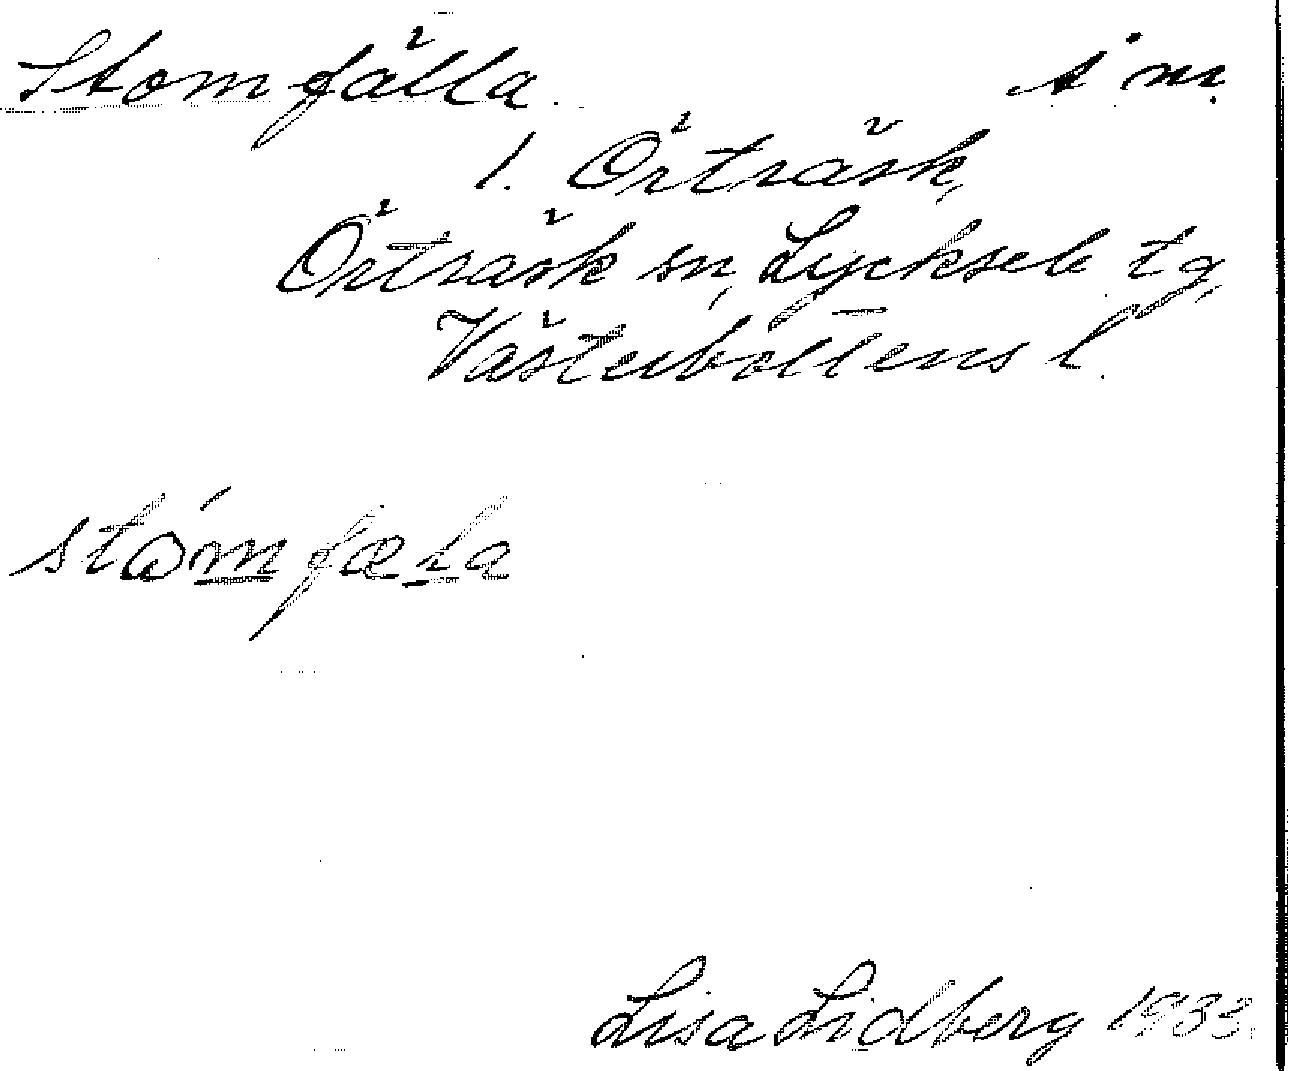 Stomfälla. i m.
1. Örträsk,
Örträsk sn, Lycksele tg,
Västerbottens l.
Lisa Lidberg 1933.